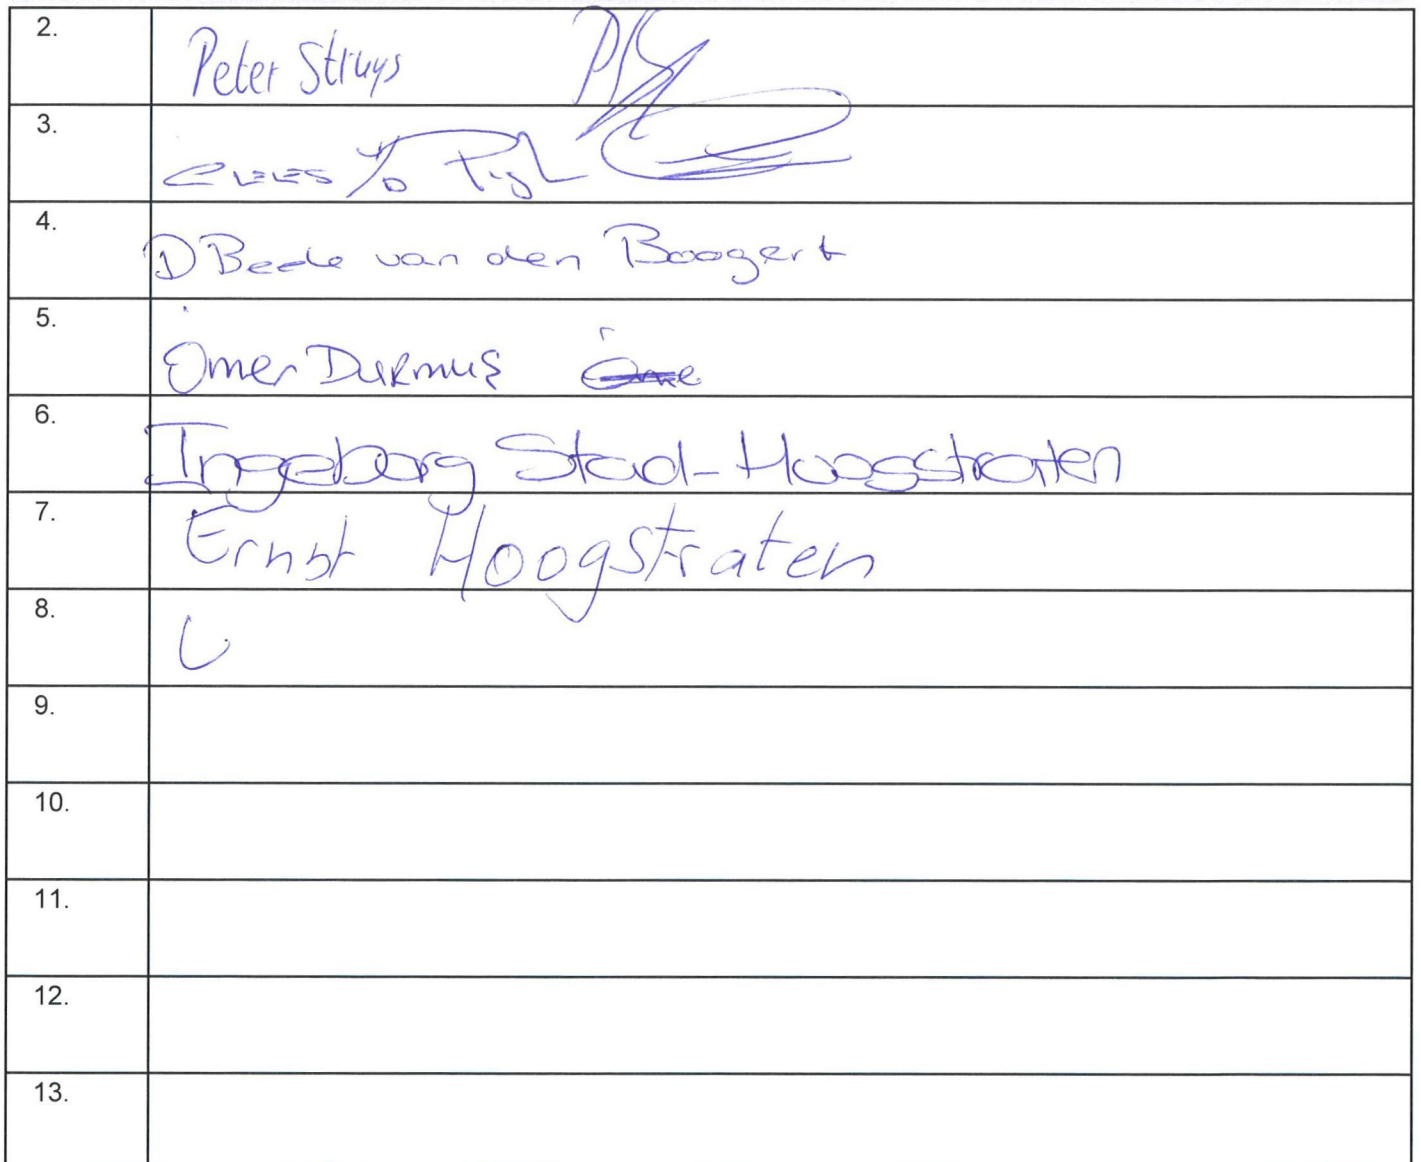 2. Peter Struys
3. Cees v/d Pijl
4. D Beede van den Boogert
5. Ömer Durmuş Öme
6. Ingeborg Stad-Hoogstraten
7. Ernst Hoogstraten
8.
9.
10.
11.
12.
13.